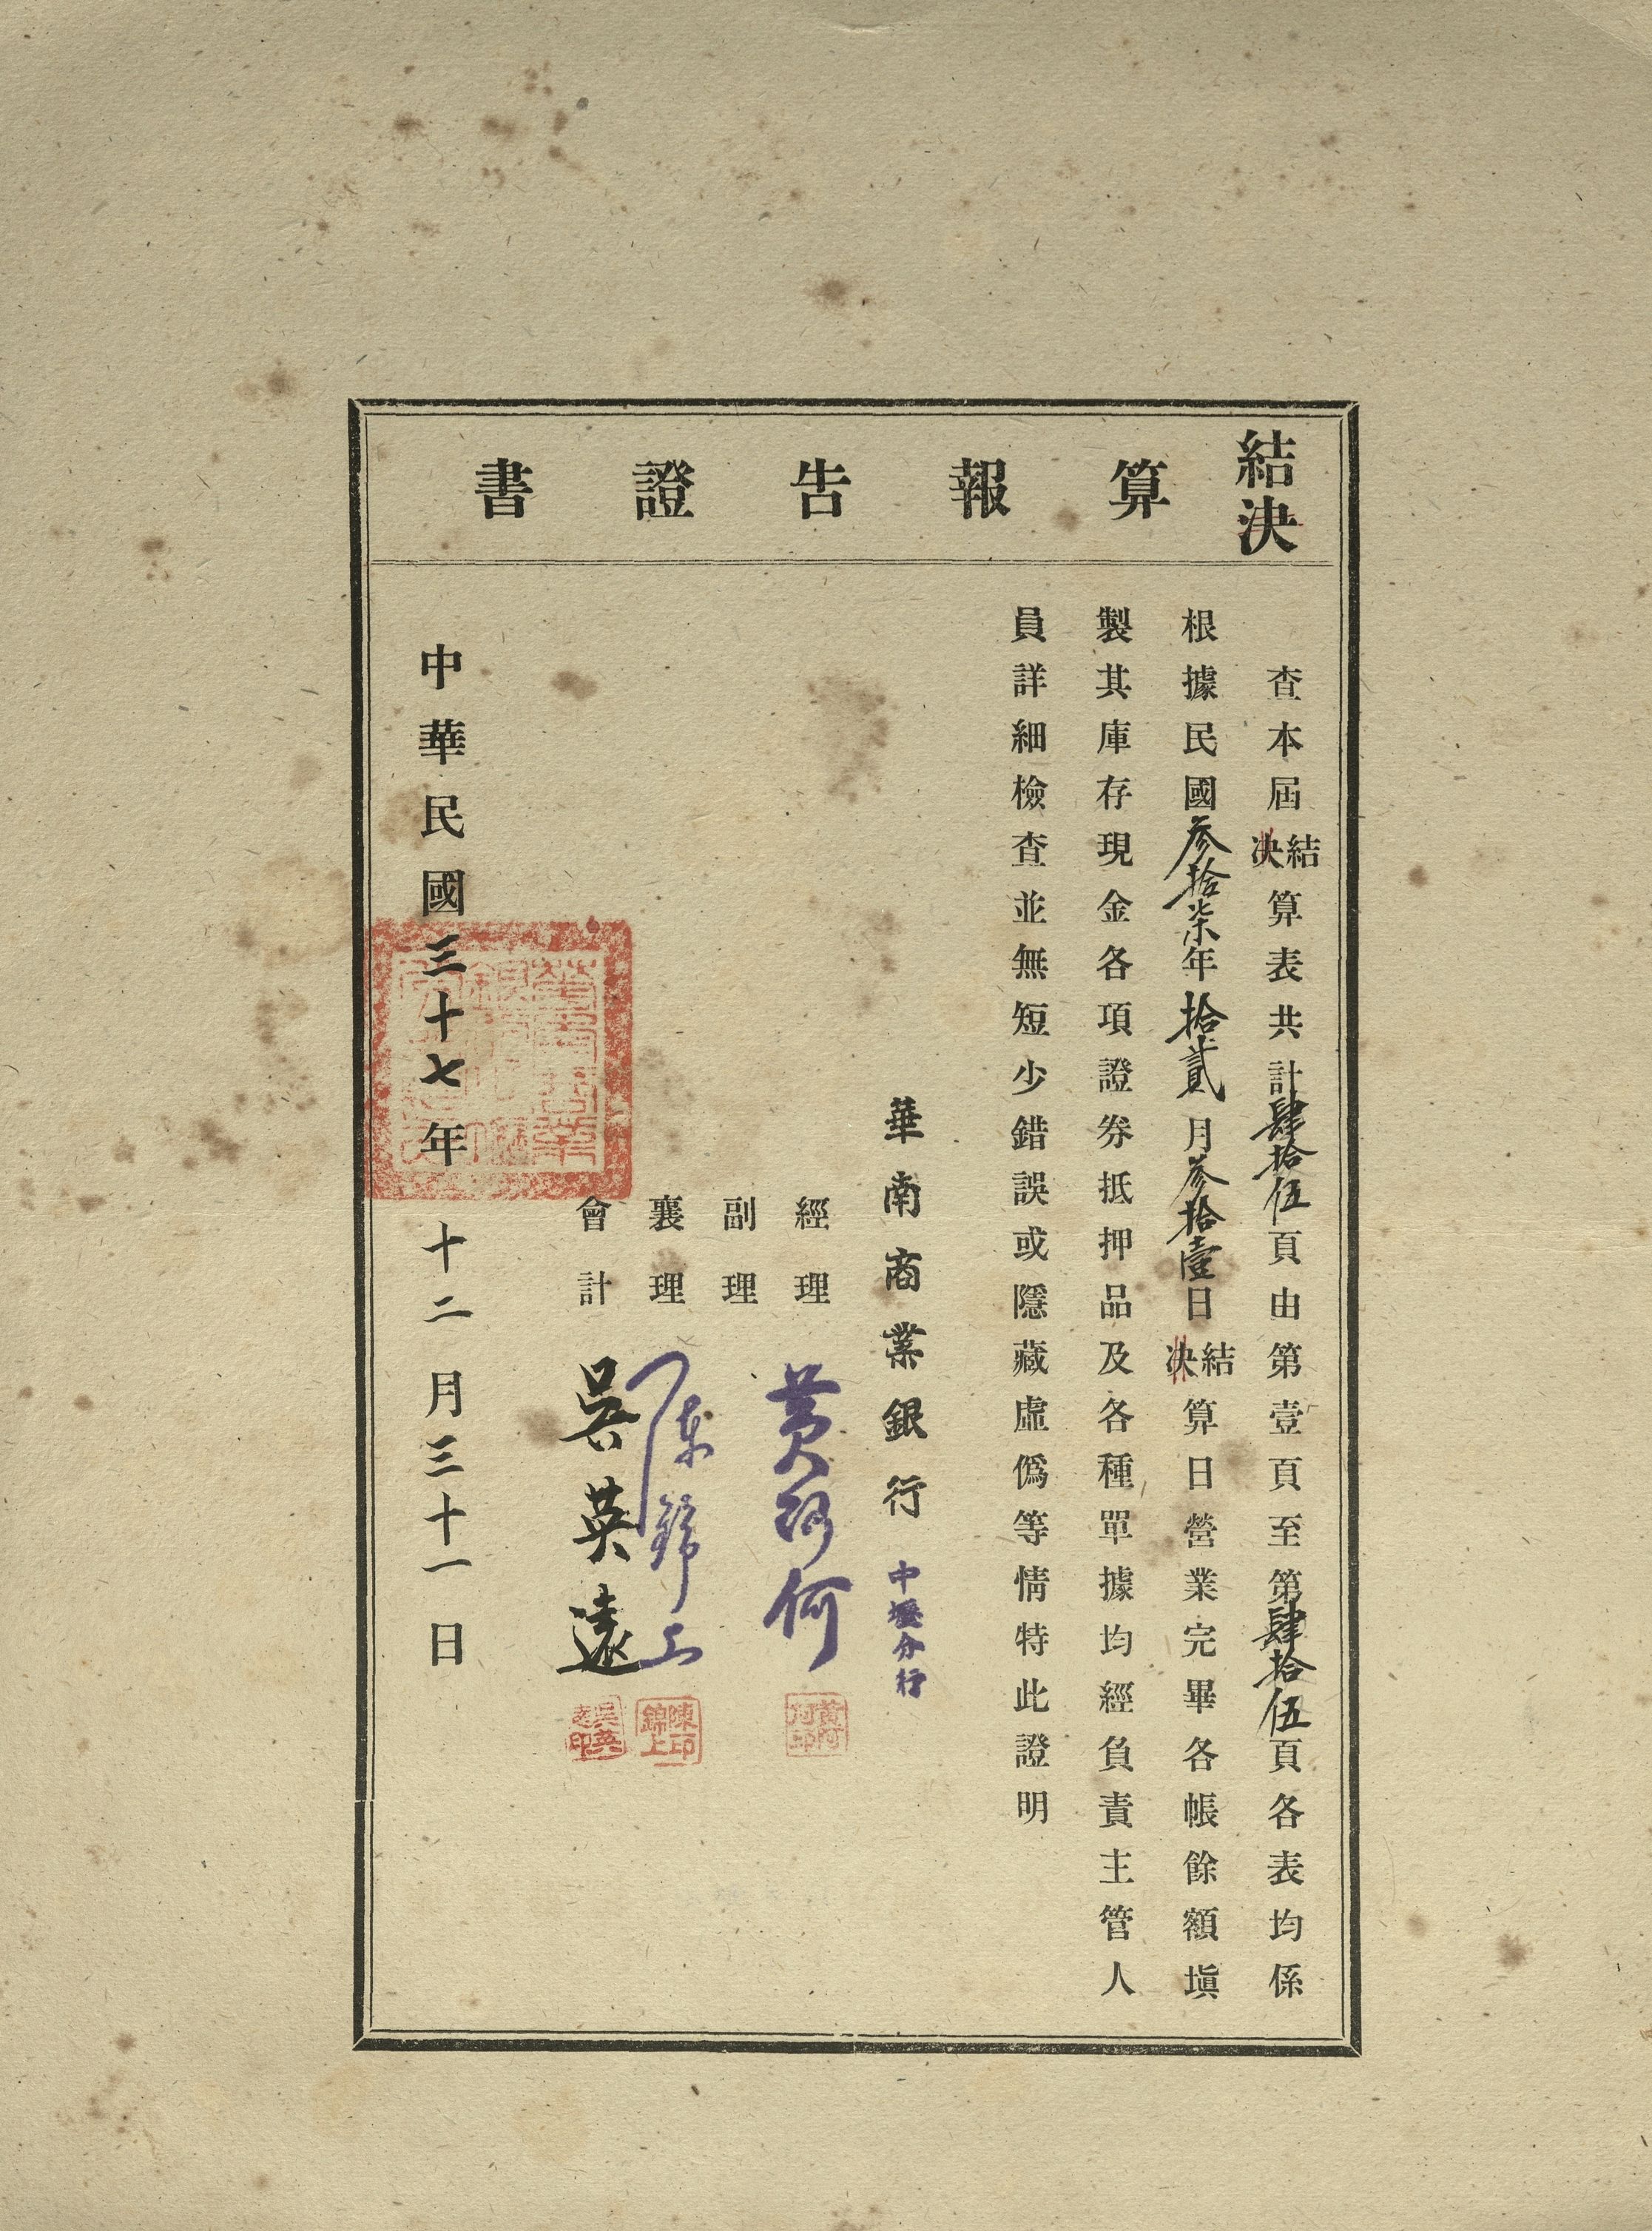 結決算報告證書
查本屆結決算表共計肆拾伍頁由第壹頁至第肆拾伍頁各表均係
根據民國參拾柒年拾貳月參拾壹日結決算日營業完畢各帳餘額塡
製其庫存現金各項證券抵押品及各種單據均經負責主管人
員詳細檢查並無短少錯誤或隱藏虛僞等情特此證明
華南商業銀行 中壢分行
經理 黃阿何 黃阿何印
副理
襄理 陳錦上 陳錦上印
會計 吳英遠 吳英遠印
中華民國三十七年十二月三十一日